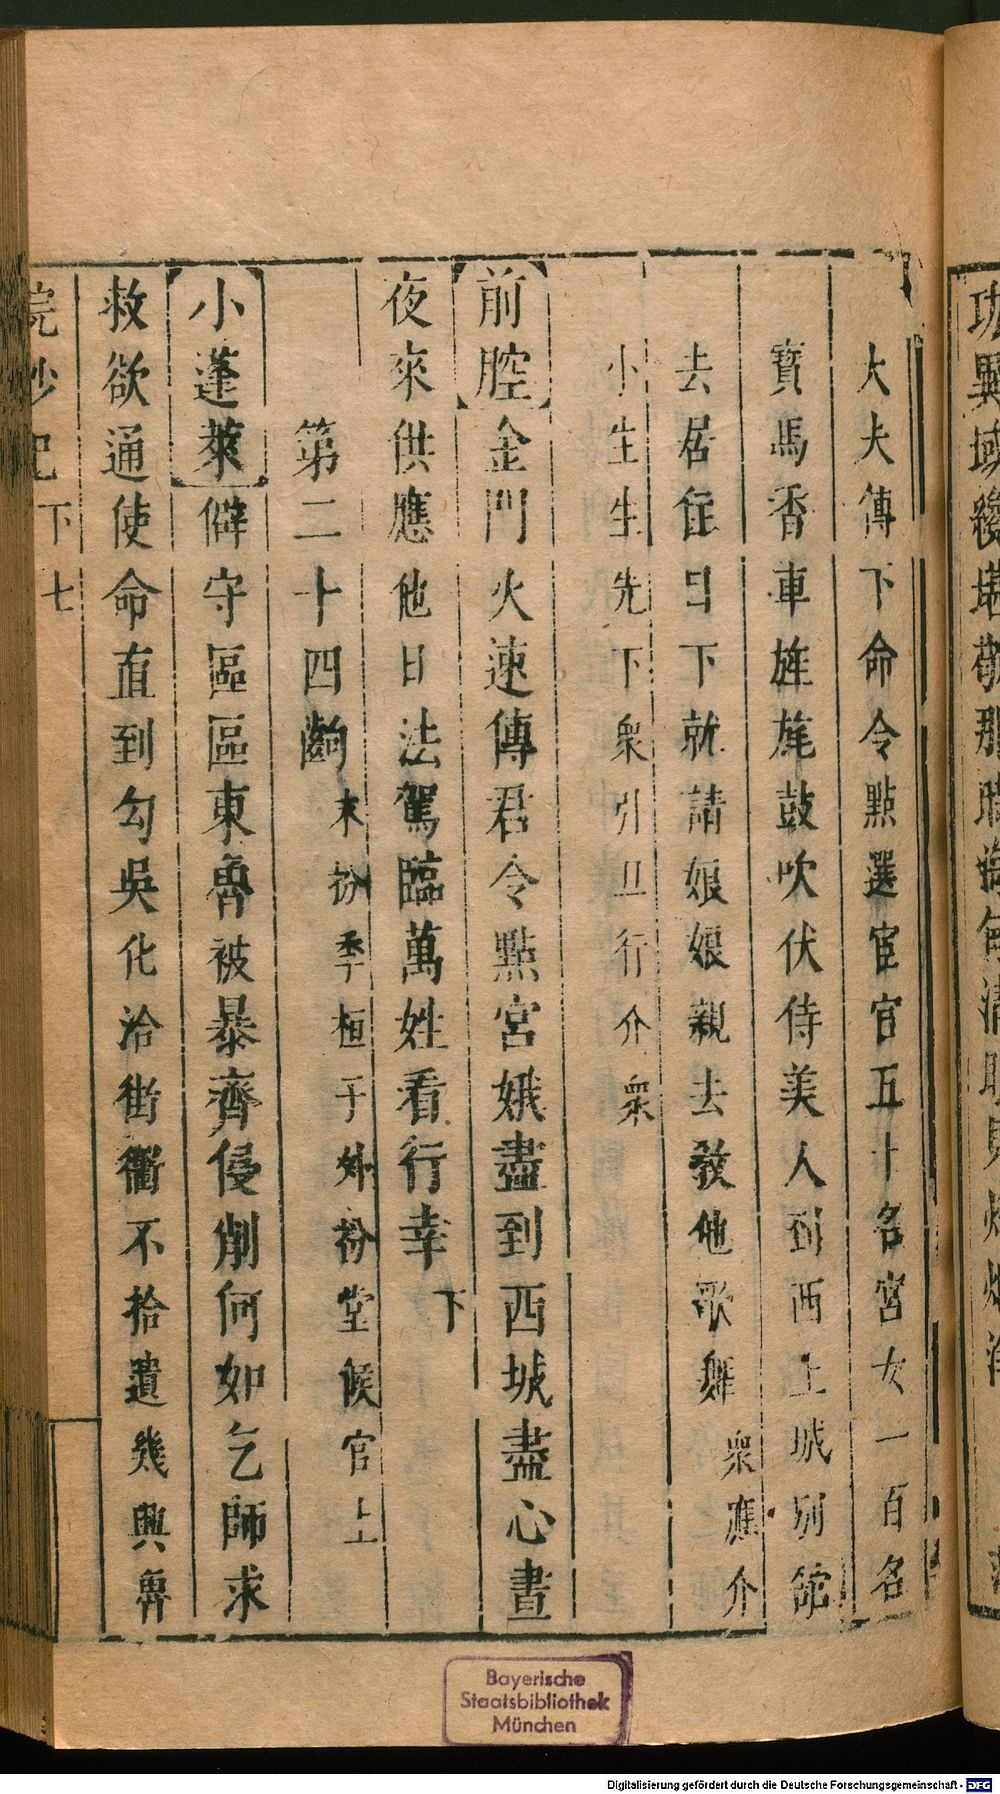 大夫傳下命令點選宦官五十名宮女一百名
寶馬香車旌旄鼓吹伏侍美人到西土城別館
去居住日下就請娘娘親去敎他歌舞衆應介
小生生先下衆引旦行介衆
前腔金門火速傳君令點宮娥盡到西城盡心晝
夜來供應他日法駕臨萬姓看行幸下
第二十四齣末扮季桓子外扮堂候官上
小蓬萊僻守區區東魯被暴齊侵削何如乞師求
救欲通使命直到勾吳化洽街衢不拾遺幾興魯
浣紗記下七
Bayerische
Staatsbibliothek
München
Digitalisierung gefördert durch die Deutsche Forschungsgemeinschaft - DFG